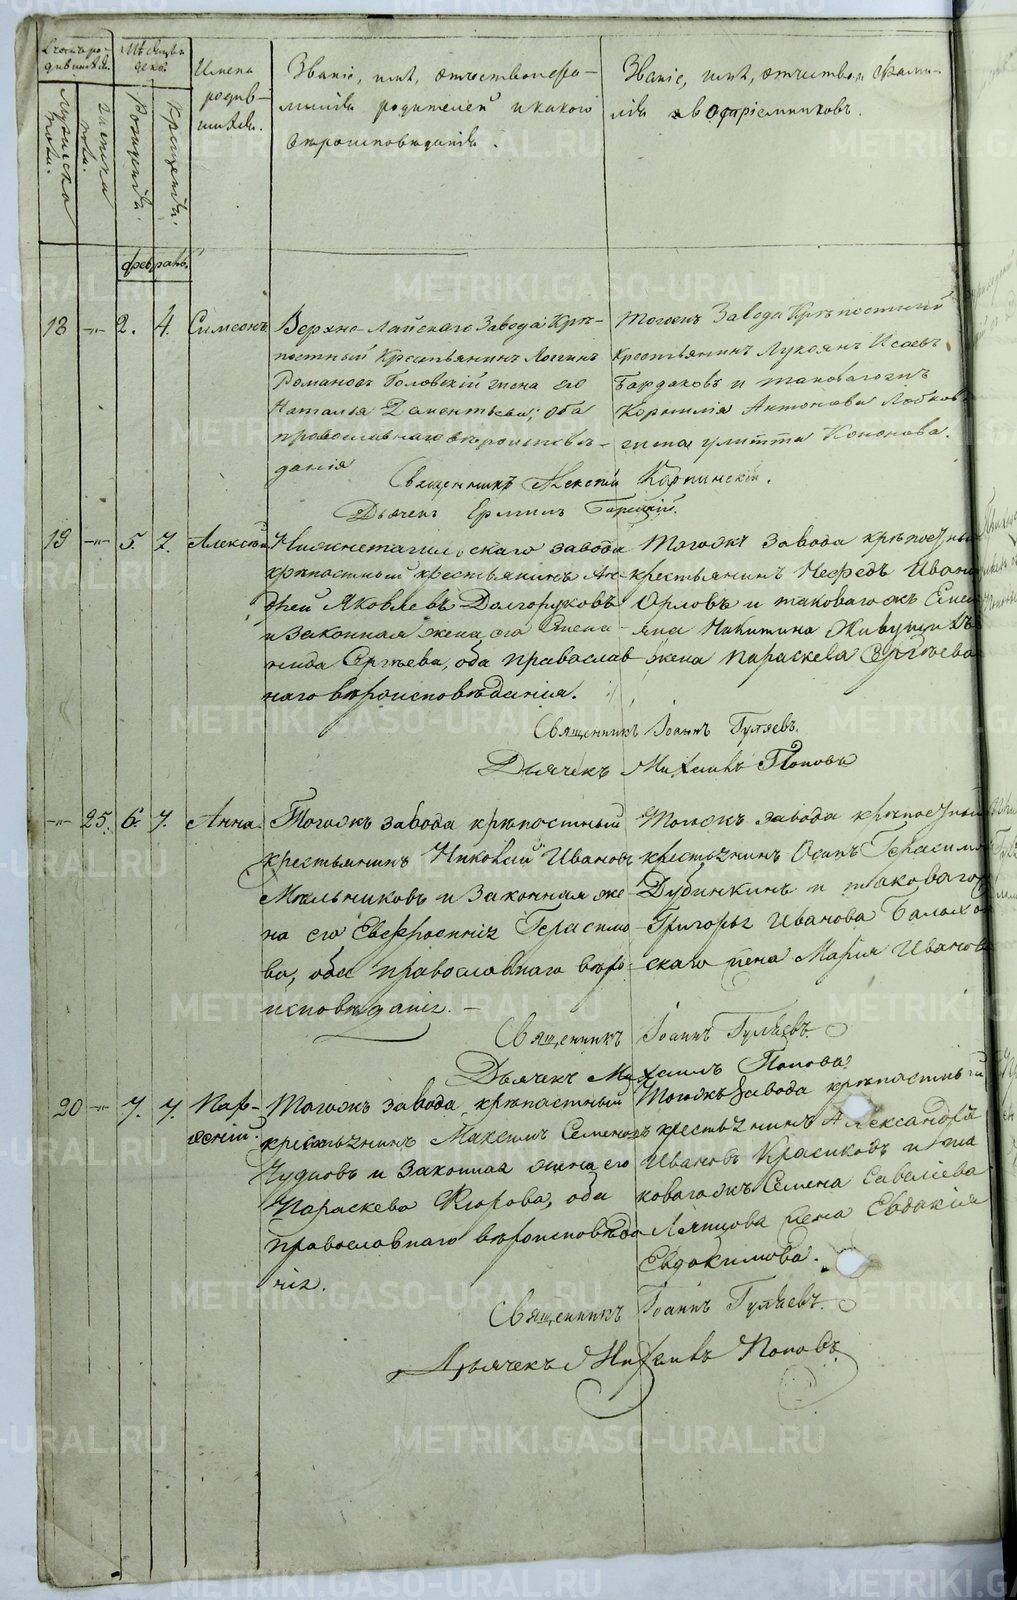 Мѣсяцъ
Имена
Званіе, имя, отчество и фамилія
родителей и какого
вѣроисповѣданія.
Званіе, имя, отчество и фамилія
воспріемниковъ.
Мужеска пола.
Женска пола.
Рожденія.
Крещенія.
февраль.
18 —"— 2. 4. Симеонъ
Верхне-Лайскаго Завода Крѣ-
постный Крестьянинъ Логинъ
Романовъ Головскій жена его
Наталья Дементьева; оба
православнаго вѣроисповѣ-
данія
Тогожъ Завода Крѣпостный
Крестьянинъ Лукоянъ Исаевъ
Бардаковъ и таковагожъ
Корнилія Антонова
жена Улитта Кононова.
Священникъ Алексій Карпинскій.
Дьячекъ Ермилъ
19 —"— 5. 7. Алексѣй
Нижнетагильскаго завода
крѣпостный крестьянинъ Ан-
дрей Яковлевъ Долгоруковъ
и законная жена его Степа-
нида Сергѣева, оба православ-
наго вѣроисповѣданія.
Тогожъ завода крѣпостный
крестьянинъ Нефедъ Иванъ
Орловъ и таковагожъ Емел
яна Никитина
жена Параскева Сергѣева
Священникъ Іоаннъ Гуляевъ.
Дьячекъ Михаилъ Поповъ
—"— 25. 6. 7. Анна.
Тогожъ завода крѣпостный
крестьянинъ Николай Ивановъ
Мельниковъ и Законная же-
на его Евфросинія Герасимо-
ва, оба православнаго вѣро-
исповѣданія. —
Тогожъ завода крѣпостный
крестьянинъ Осипъ Герасимо
Дубинкинъ и таковагож
Григорья Иванова
скаго жена Марія Иванов
Священникъ Іоаннъ Гуляевъ.
Дьячекъ Михаилъ Поповъ
20 —"— 7. 7. Пар-
ѳеній.
Тогожъ завода крѣпостный
крестьянинъ Максимъ Семеновъ
Чудновъ и Законная жена его
Параскева Ѳедорова, оба
православнаго вѣроисповѣда
нія.
Тогожъ Завода крѣпостный
крестьянинъ Александръ
Ивановъ Красиковъ и та
ковагожъ Семена Савеліева
жена Евдокія
Евдокимова.
Священникъ Іоаннъ Гуляевъ.
Дьячекъ Михаилъ Поповъ.
METRIKI.GASO-URAL.RU